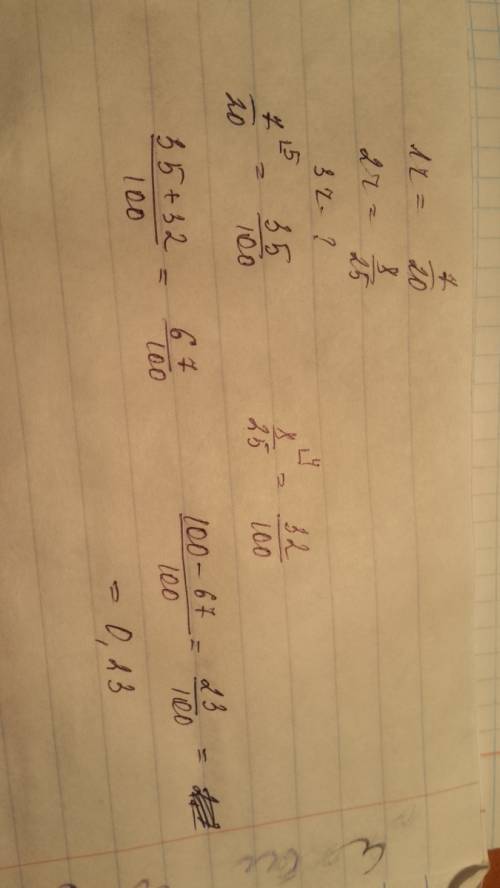 1г = 7/20
2г = 8/25
3г - ?
7/20 ⌊5 = 35/100    8/25 ⌊4 = 32/100
(35+32)/100 = 67/100    (100-67)/100 = 23/100 =
= 0,23